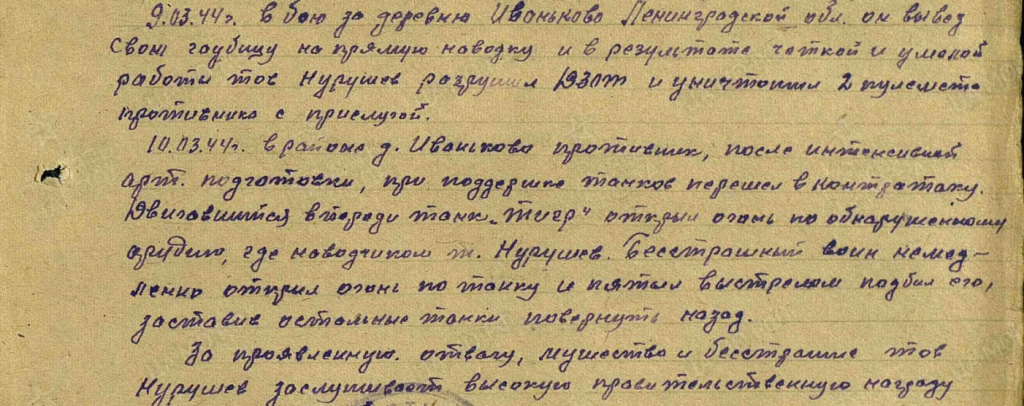 9.03.44г. в бою за деревню Иваньково Ленинградской обл. он вывез
свою гаубицу на прямую наводку и в результате четкой и умелой
работы тов Нурушев разрушил ДЗОТ и уничтожил 2 пулемета
противника с прислугой.
10.03.44г. в районе д. Иваньково противник, после интенсивной
арт. подготовки, при поддержке танков перешел в контратаку.
Двигавшийся впереди танк „Тигр" открыл огонь по обнаруженному
орудию, где наводчиком т. Нурушев. Бесстрашный воин немед-
ленно открыл огонь по танку и пятым выстрелом подбил его,
заставив остальные танки повернуть назад.
За проявленную отвагу, мужество и бесстрашие тов
Нурушев заслуживает высокую правительственную награду